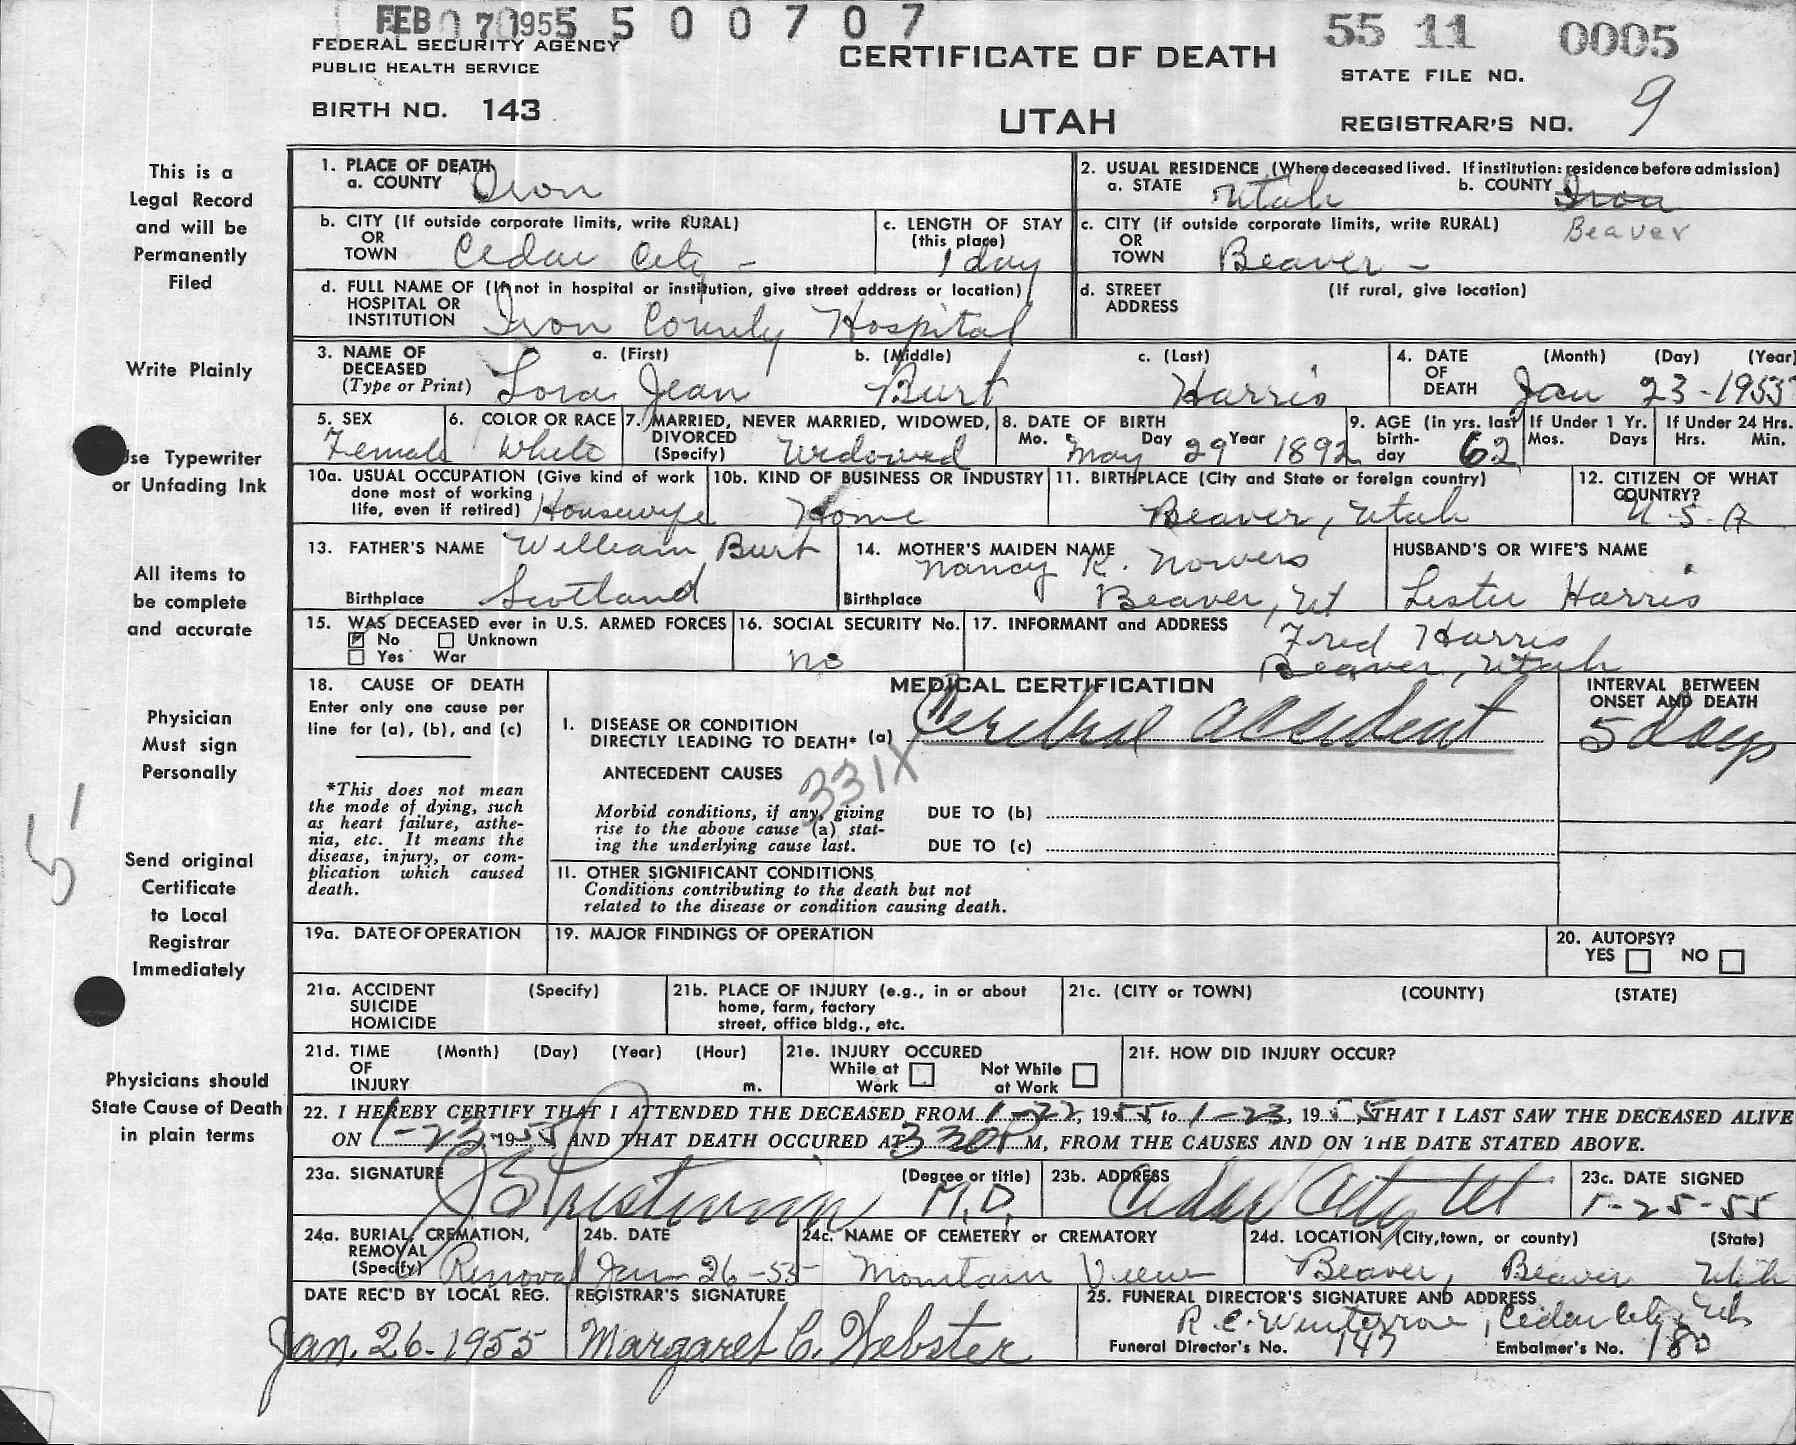 FEB 07 1955 5 0 0 7 0 7
55 11 0005
FEDERAL SECURITY AGENCY
PUBLIC HEALTH SERVICE
CERTIFICATE OF DEATH
STATE FILE NO.
BIRTH NO. 143
UTAH
REGISTRAR'S NO. 9
This is a
Legal Record
and will be
Permanently
Filed
Write Plainly
Use Typewriter
or Unfading Ink
All items to
be complete
and accurate
Physician
Must sign
Personally
5
Send original
Certificate
to Local
Registrar
Immediately
Physicians should
State Cause of Death
in plain terms
1. PLACE OF DEATH
a. COUNTY Iron
2. USUAL RESIDENCE (Where deceased lived. If institution: residence before admission)
a. STATE Utah b. COUNTY Iron
Beaver
b. CITY (If outside corporate limits, write RURAL)
OR
TOWN Cedar City -
c. LENGTH OF STAY
(this place)
1 day
c. CITY (if outside corporate limits, write RURAL)
OR
TOWN Beaver -
d. FULL NAME OF (If not in hospital or institution, give street address or location)
HOSPITAL OR
INSTITUTION Iron County Hospital
d. STREET (If rural, give location)
ADDRESS
3. NAME OF DECEASED
(Type or Print)
a. (First) b. (Middle) c. (Last)
Lora Jean Burt Harris
4. DATE OF DEATH
(Month) (Day) (Year)
Jan 23-1955
5. SEX
Female
6. COLOR OR RACE
White
7. MARRIED, NEVER MARRIED, WIDOWED,
DIVORCED
(Specify) Widowed
8. DATE OF BIRTH
Mo. Day Year
May 29 1892
9. AGE (in yrs. last
birth-
day 62
If Under 1 Yr.
Mos. Days
If Under 24 Hrs.
Hrs. Min.
10a. USUAL OCCUPATION (Give kind of work
done most of working
life, even if retired) Housewife
10b. KIND OF BUSINESS OR INDUSTRY
Home
11. BIRTHPLACE (City and State or foreign country)
Beaver, Utah
12. CITIZEN OF WHAT
COUNTRY?
U.S.A
13. FATHER'S NAME William Burt
Birthplace Scotland
14. MOTHER'S MAIDEN NAME
Nancy K. Nowers
Birthplace Beaver, Ut
HUSBAND'S OR WIFE'S NAME
Lester Harris
15. WAS DECEASED ever in U.S. ARMED FORCES
No Unknown
Yes War
16. SOCIAL SECURITY No.
no
17. INFORMANT and ADDRESS
Fred Harris
Beaver, Utah
18. CAUSE OF DEATH
Enter only one cause per
line for (a), (b), and (c)
*This does not mean
the mode of dying, such
as heart failure, asthe-
nia, etc. It means the
disease, injury, or com-
plication which caused
death.
MEDICAL CERTIFICATION
I. DISEASE OR CONDITION
DIRECTLY LEADING TO DEATH* (a) Cerebral accident
INTERVAL BETWEEN
ONSET AND DEATH
5 days
ANTECEDENT CAUSES
331X
Morbid conditions, if any, giving
rise to the above cause (a) stat-
ing the underlying cause last.
DUE TO (b)
DUE TO (c)
II. OTHER SIGNIFICANT CONDITIONS
Conditions contributing to the death but not
related to the disease or condition causing death.
19a. DATE OF OPERATION
19. MAJOR FINDINGS OF OPERATION
20. AUTOPSY?
YES NO
21a. ACCIDENT (Specify)
SUICIDE
HOMICIDE
21b. PLACE OF INJURY (e.g., in or about
home, farm, factory
street, office bldg., etc.
21c. (CITY or TOWN) (COUNTY) (STATE)
21d. TIME (Month) (Day) (Year) (Hour)
OF
INJURY m.
21e. INJURY OCCURED
While at Work
Not While at Work
21f. HOW DID INJURY OCCUR?
22. I HEREBY CERTIFY THAT I ATTENDED THE DECEASED FROM 1-22, 1955, to 1-23, 1955, THAT I LAST SAW THE DECEASED ALIVE
ON 1-23, 1955 AND THAT DEATH OCCURED AT 330P M, FROM THE CAUSES AND ON THE DATE STATED ABOVE.
23a. SIGNATURE (Degree or title)
M.D.
23b. ADDRESS
Cedar City Ut
23c. DATE SIGNED
1-25-55
24a. BURIAL, CREMATION,
REMOVAL
(Specify) Removal
24b. DATE
Jan 26-55
24c. NAME OF CEMETERY or CREMATORY
Mountain View
24d. LOCATION (City, town, or county) (State)
Beaver, Beaver Utah
DATE REC'D BY LOCAL REG.
Jan. 26-1955
REGISTRAR'S SIGNATURE
Margaret C. Webster
25. FUNERAL DIRECTOR'S SIGNATURE AND ADDRESS
R.C. Winterrose, Cedar City, Utah
Funeral Director's No. 147 Embalmer's No. 180